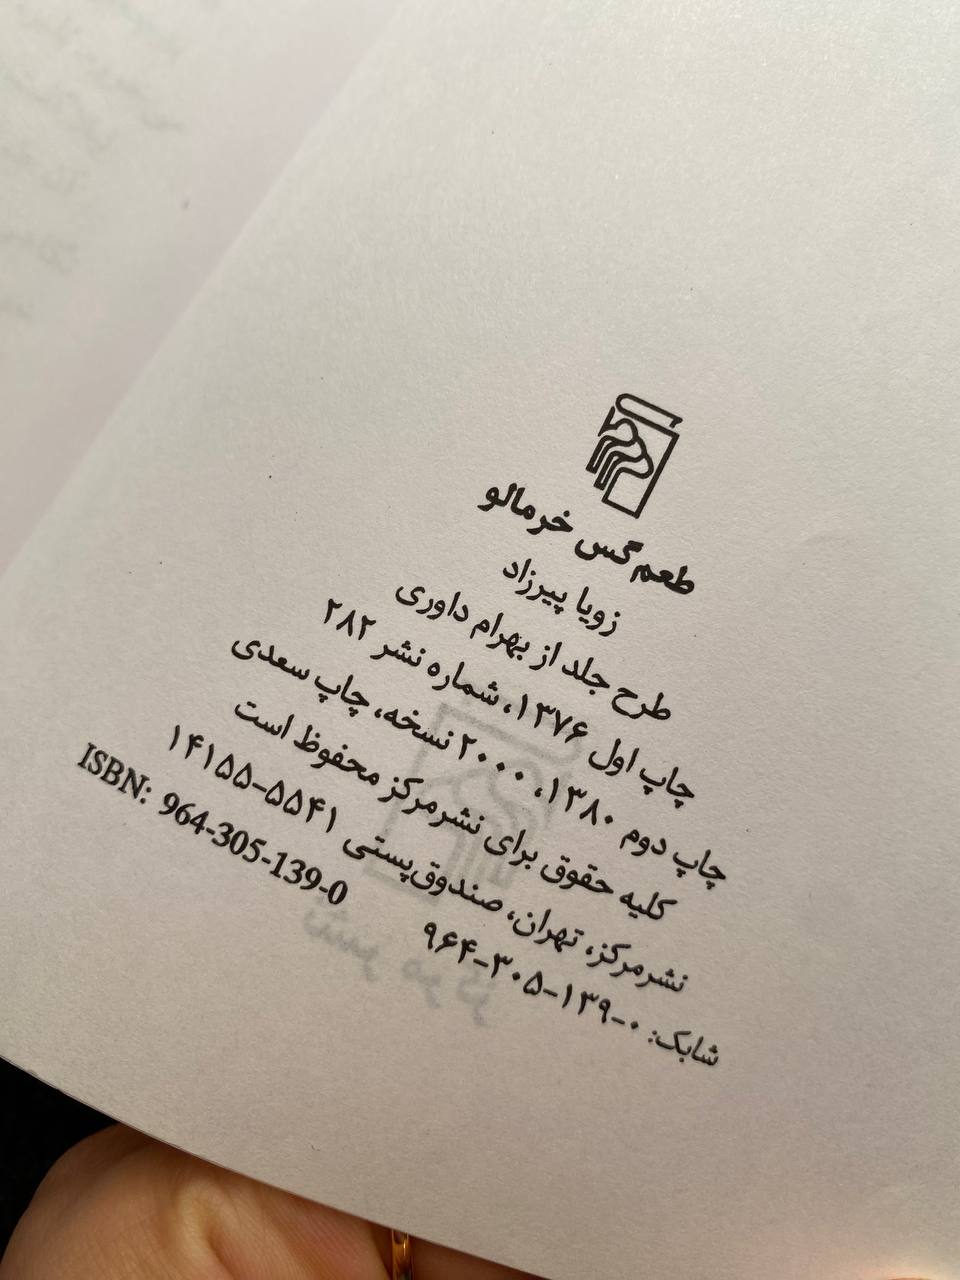 طعم گس خرمالو
زویا پیرزاد
طرح جلد از بهرام داوری
چاپ اول ۱۳۷۶، شماره نشر ۲۸۲
چاپ دوم ۱۳۸۰، ۲۰۰۰ نسخه، چاپ سعدی
کلیه حقوق برای نشرمرکز محفوظ است
نشرمرکز، تهران، صندوق‌پستی ۵۵۴۱-۱۴۱۵۵
ISBN: 964-305-139-0
شابک: ۰-۱۳۹-۳۰۵-۹۶۴
نشر مرکز